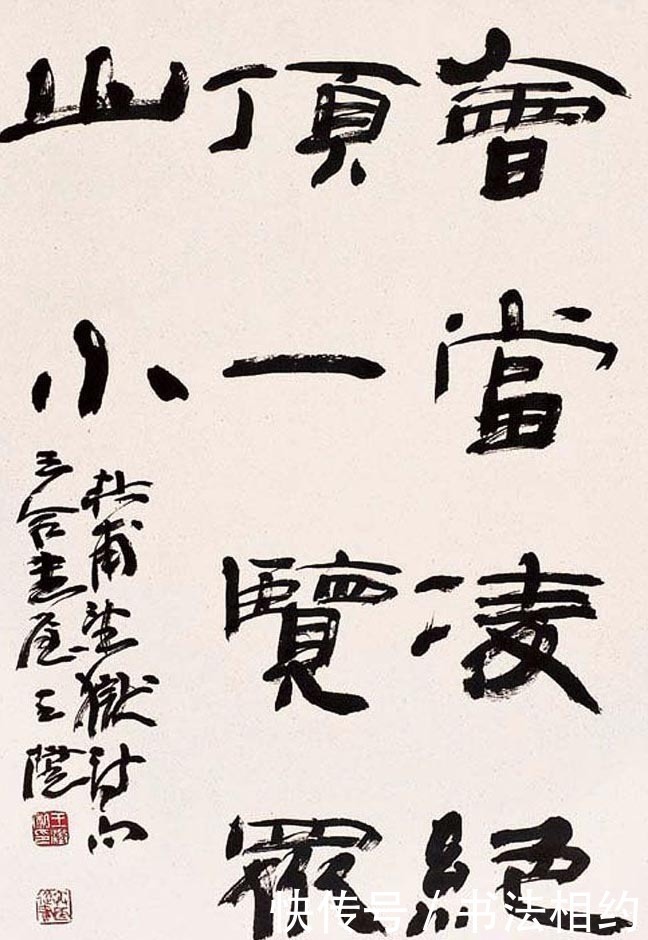 會當凌絕
頂一覽眾
山小
杜甫望獄詩句
三合書屋王
快传号 / 书法相约